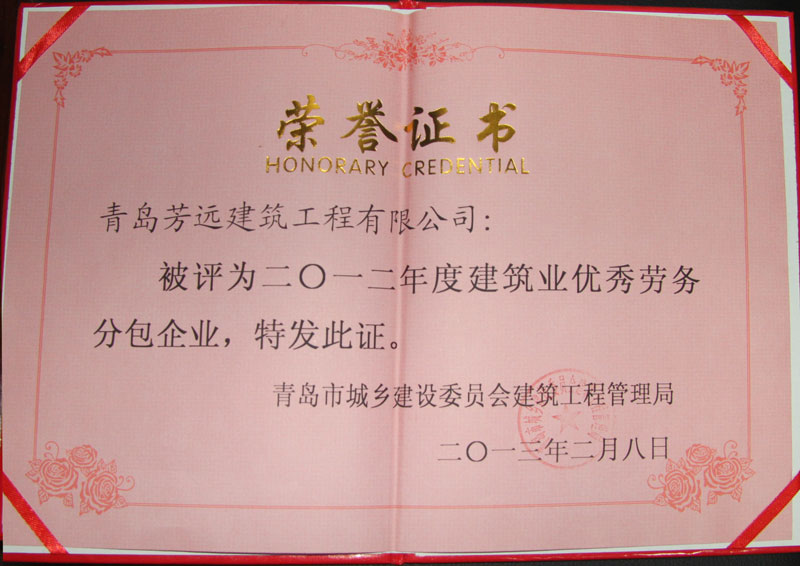 荣誉证书
HONORARY CREDENTIAL
青岛芳远建筑工程有限公司：
被评为二〇一二年度建筑业优秀劳务
分包企业，特发此证。
青岛市城乡建设委员会建筑工程管理局
二〇一三年二月八日